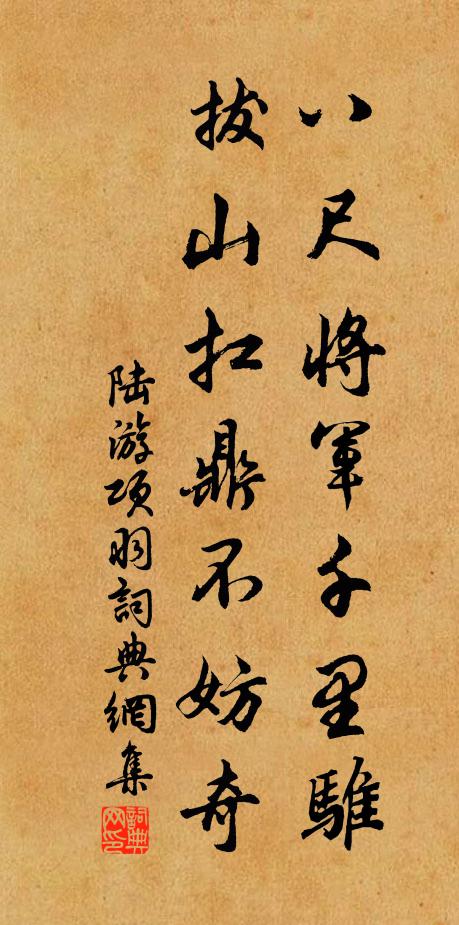 八尺將軍千里騅
拔山扛鼎不妨奇
陆游項羽詞典網集
詞典网印